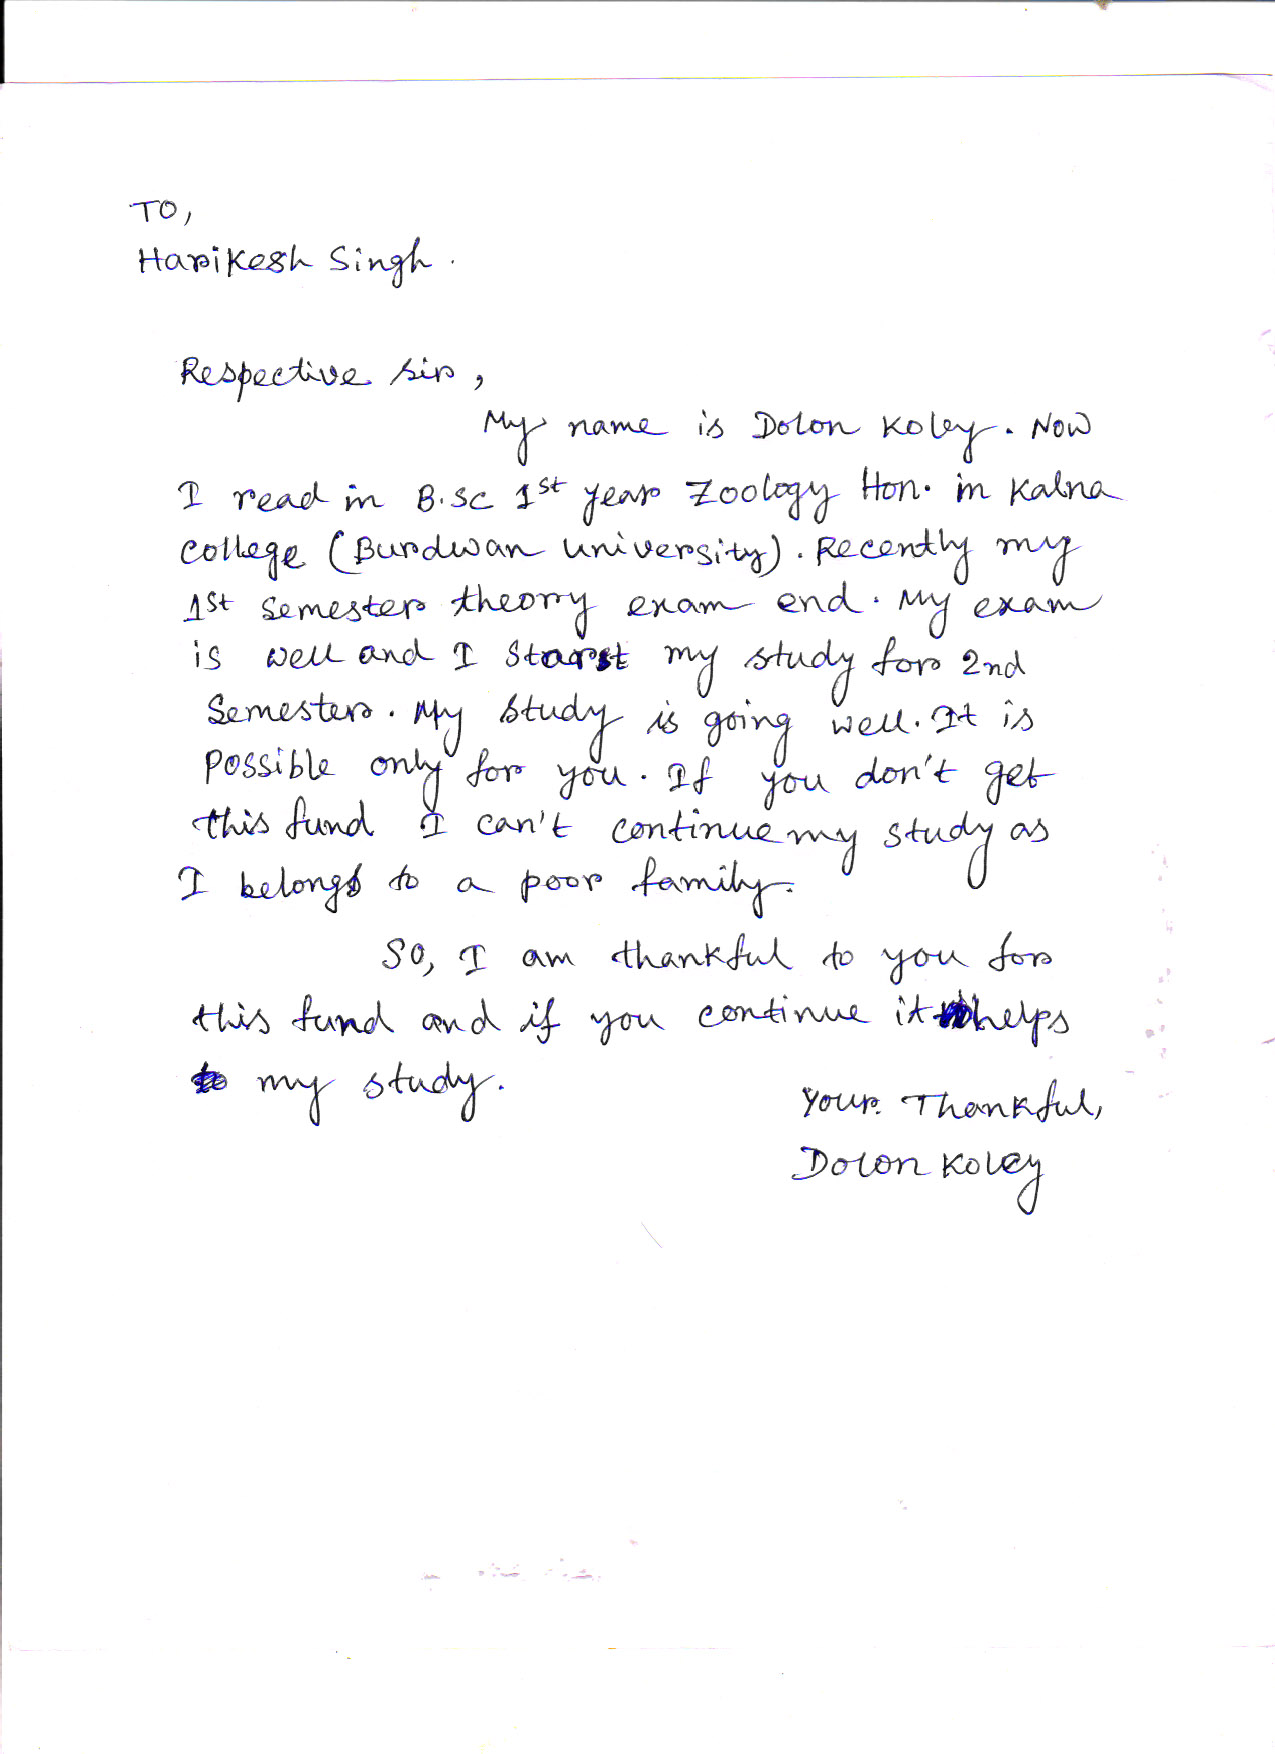 TO,
Harikesh Singh.
Respective sir,
My name is Dolon Koley. Now
I read in B.Sc 1st year Zoology Hon. in Kalna
College (Burdwan University). Recently my
1st semester theory exam end. My exam
is well and I start my study for 2nd
Semester. My study is going well. It is
possible only for you. If you don't get
this fund I can't continue my study as
I belongs to a poor family.
So, I am thankful to you for
this fund and if you continue it helps
my study.
Your Thankful,
Dolon Koley